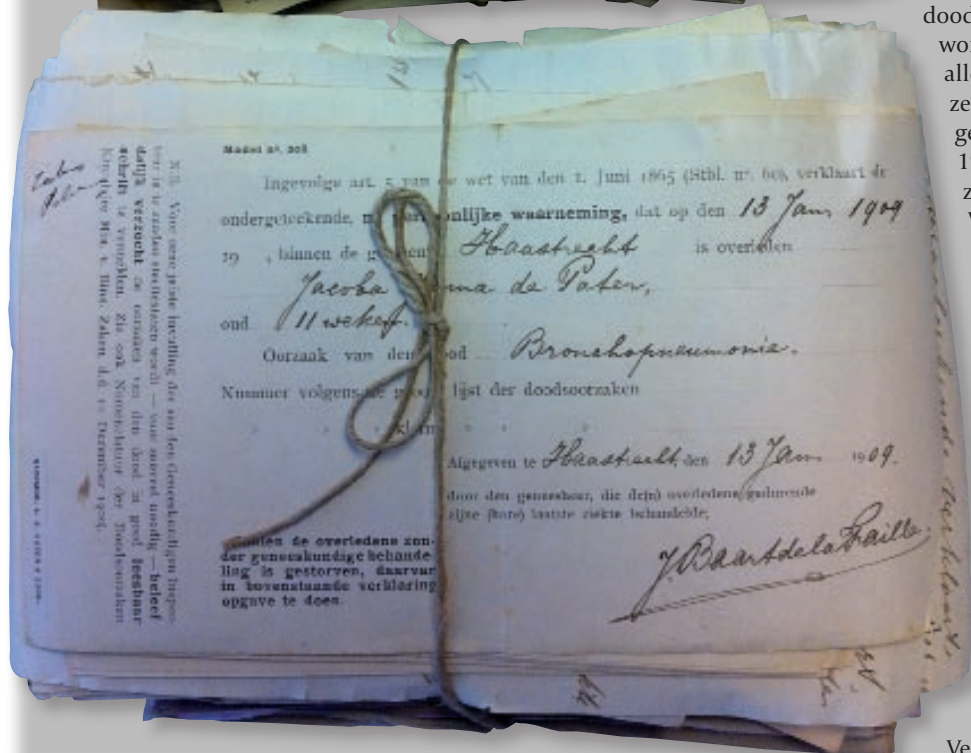 dood
wo
alle
ze
ge
1
z
Model nº. 208
Ingevolge art. 5 van de wet van den 1. Juni 1865 (Stbl. nº. 60), verklaart de
ondergeteekende, onlijke waarneming, dat op den 13 Jan 1909
19 , binnen de g Haastrecht is overleden
Jacoba de Pater,
oud 11 weken.
Oorzaak van den ood Bronchopneumonia.
Nummer volgens de lijst der doodsoorzaken
klein
Afgegeven te Haastrecht den 13 Jan 1909.
door den geneesheer, die de(n) overledene gedurende
zijne (hare) laatste ziekte behandelde,
J. Baart de la Faille
de overledene zon-
der geneeskundige behande-
ling is gestorven, daarvan
in bovenstaande verklaring
opgave te doen.
N.B. Voor eene juiste invulling der aan den Geneeskundigen Inspec-
teur in te zenden wordt — voor zooveel noodig — beleef
delijk verzocht de oorzaken van den dood in goed leesbaar
schrift te vermelden. Zie ook Nomenclatuur der Doodsoorzaken
Min. v. Binn. Zaken d.d. December
Ve